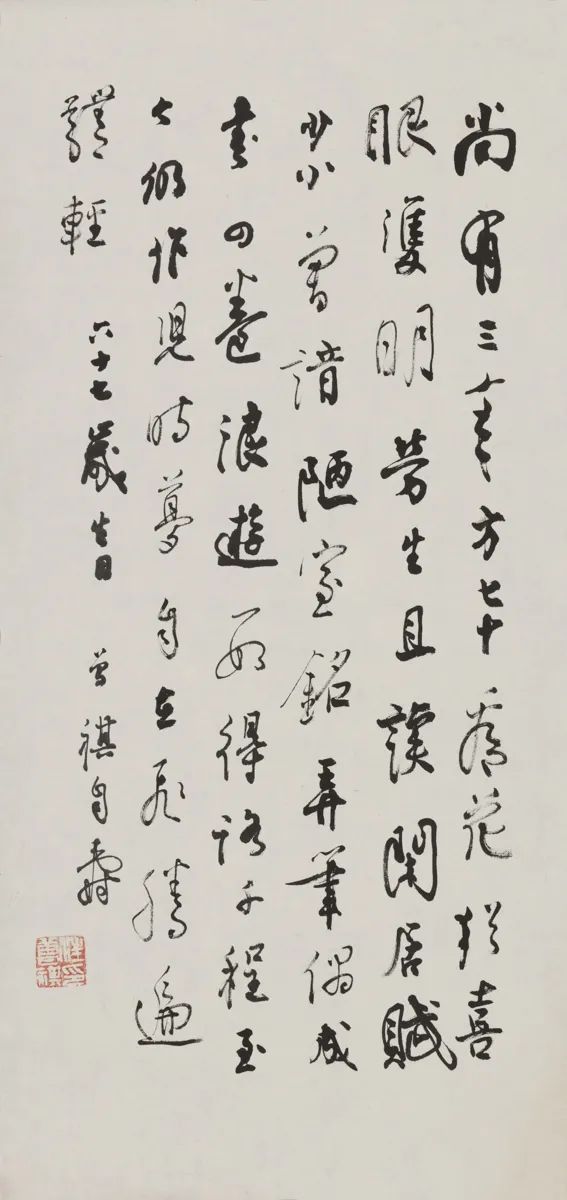 尚有三年方七十看花猶喜
眼雙明勞生且讀閑居賦
少小曾諳陋室銘弄筆偶成
書四卷浪遊數得路千程至
今仍作兒時夢自在飛騰遍
體輕 六十七歲生日 曾祺自壽
汪曾祺印